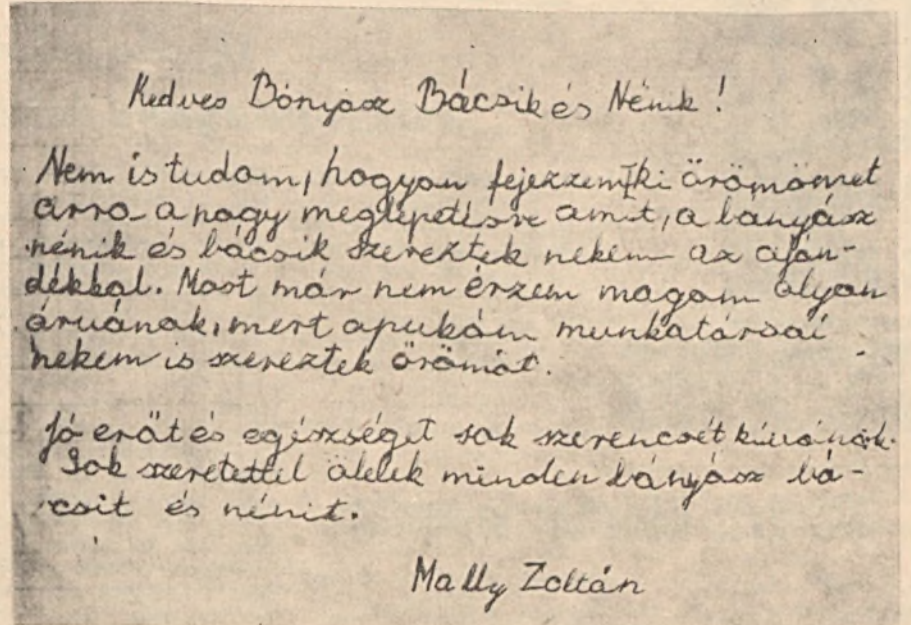 Kedves Bányász Bácsik és Nénik!
Nem is tudom, hogyan fejezzem ki örömömet
arra a nagy meglepetésre amit, a bányász
nénik és bácsik szereztek nekem az aján-
dékkal. Most már nem érzem magam olyan
árvának, mert apukám munkatársai
nekem is szereztek örömöt.
Jó erőt és egészséget sok szerencsét kívánok.
Sok szeretettel ölelek minden bányász bá-
csit és nénit.
Mally Zoltán